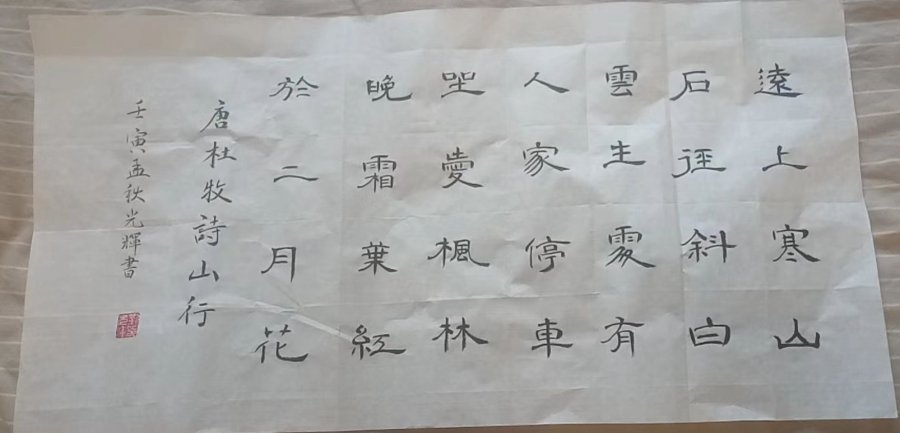 遠上寒山
石徑斜白
雲生處有
人家停車
坐愛楓林
晚霜葉紅
於二月花
唐杜牧詩山行
壬寅孟秋光輝書